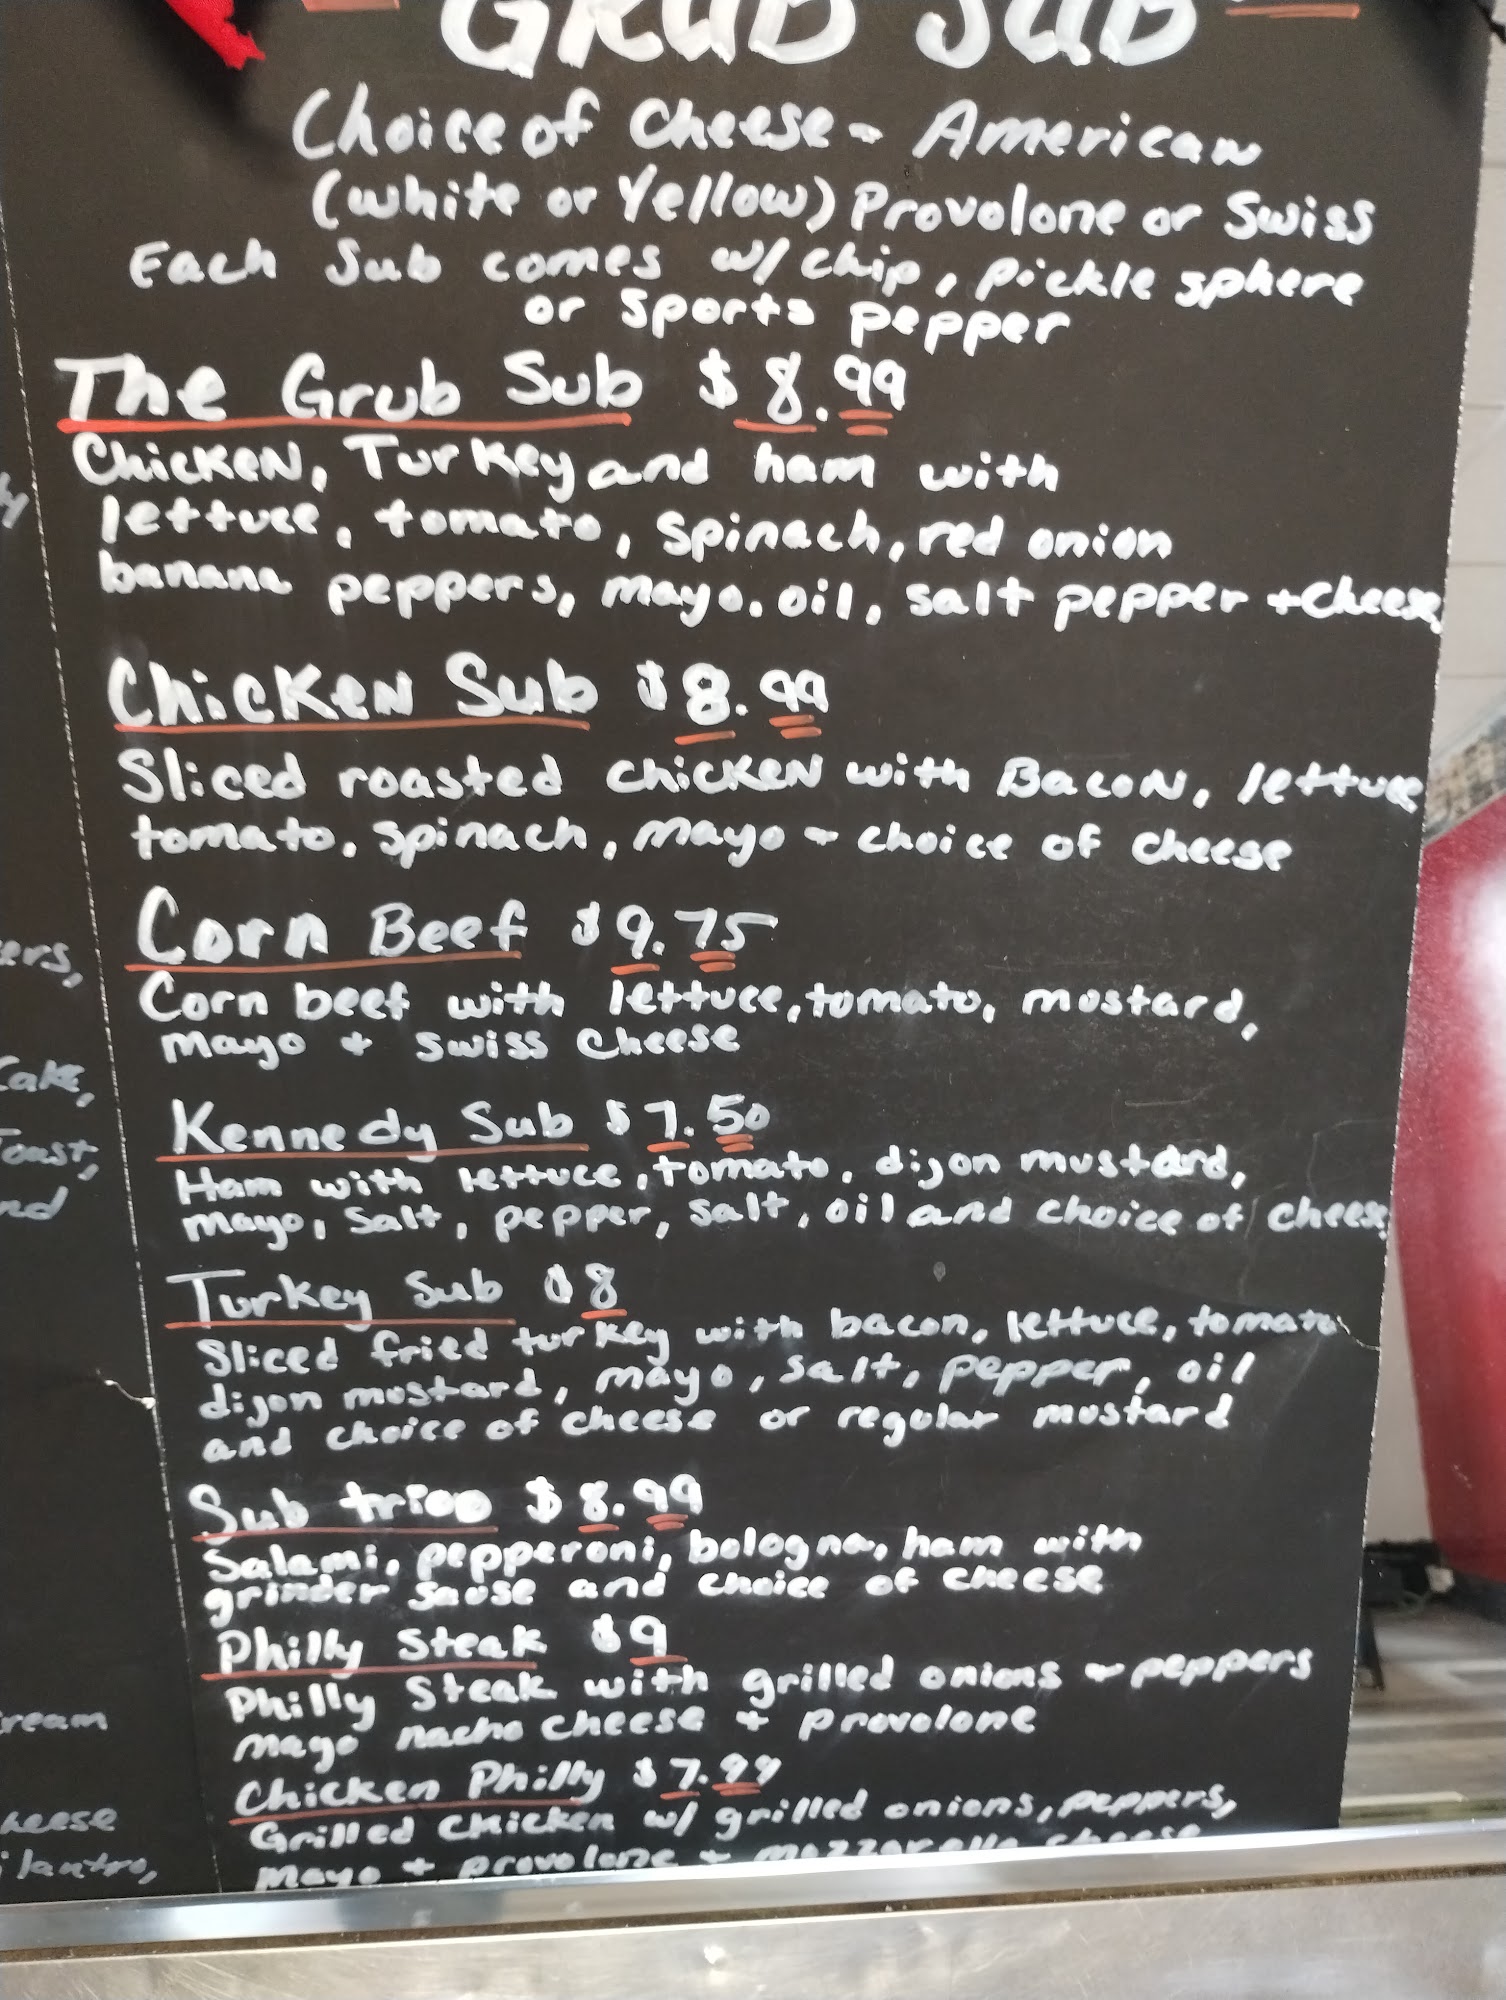 GRUB SUB
Choice of Cheese - American
(white or Yellow) Provolone or Swiss
Each Sub comes w/ chip, pickle sphere
or sports pepper
The Grub Sub $8.99
Chicken, Turkey and ham with
lettuce, tomato, spinach, red onion
banana peppers, mayo, oil, salt pepper + cheese
Chicken Sub $8.99
Sliced roasted chicken with Bacon, lettuce
tomato, spinach, mayo - choice of cheese
Corn Beef $9.75
Corn beef with lettuce, tomato, mostard,
mayo + swiss cheese
Kennedy Sub $7.50
Ham with lettuce, tomato, dijon mustard,
mayo, salt, pepper, salt, oil and choice of cheese
Turkey Sub $8
Sliced fried turkey with bacon, lettuce, tomato
dijon mustard, mayo, salt, pepper, oil
and choice of cheese or regular mustard
Sub trio $8.99
Salami, pepperoni, bologna, ham with
grinder sause and choice of cheese
Philly Steak $9
Philly Steak with grilled onions + peppers
mayo nacho cheese + provolone
Chicken Philly $7.99
Grilled chicken w/ grilled onions, peppers,
mayo + provolone + mozzarella cheese
ers,
Cake,
Toast,
nd
ream
heese
ilantro,